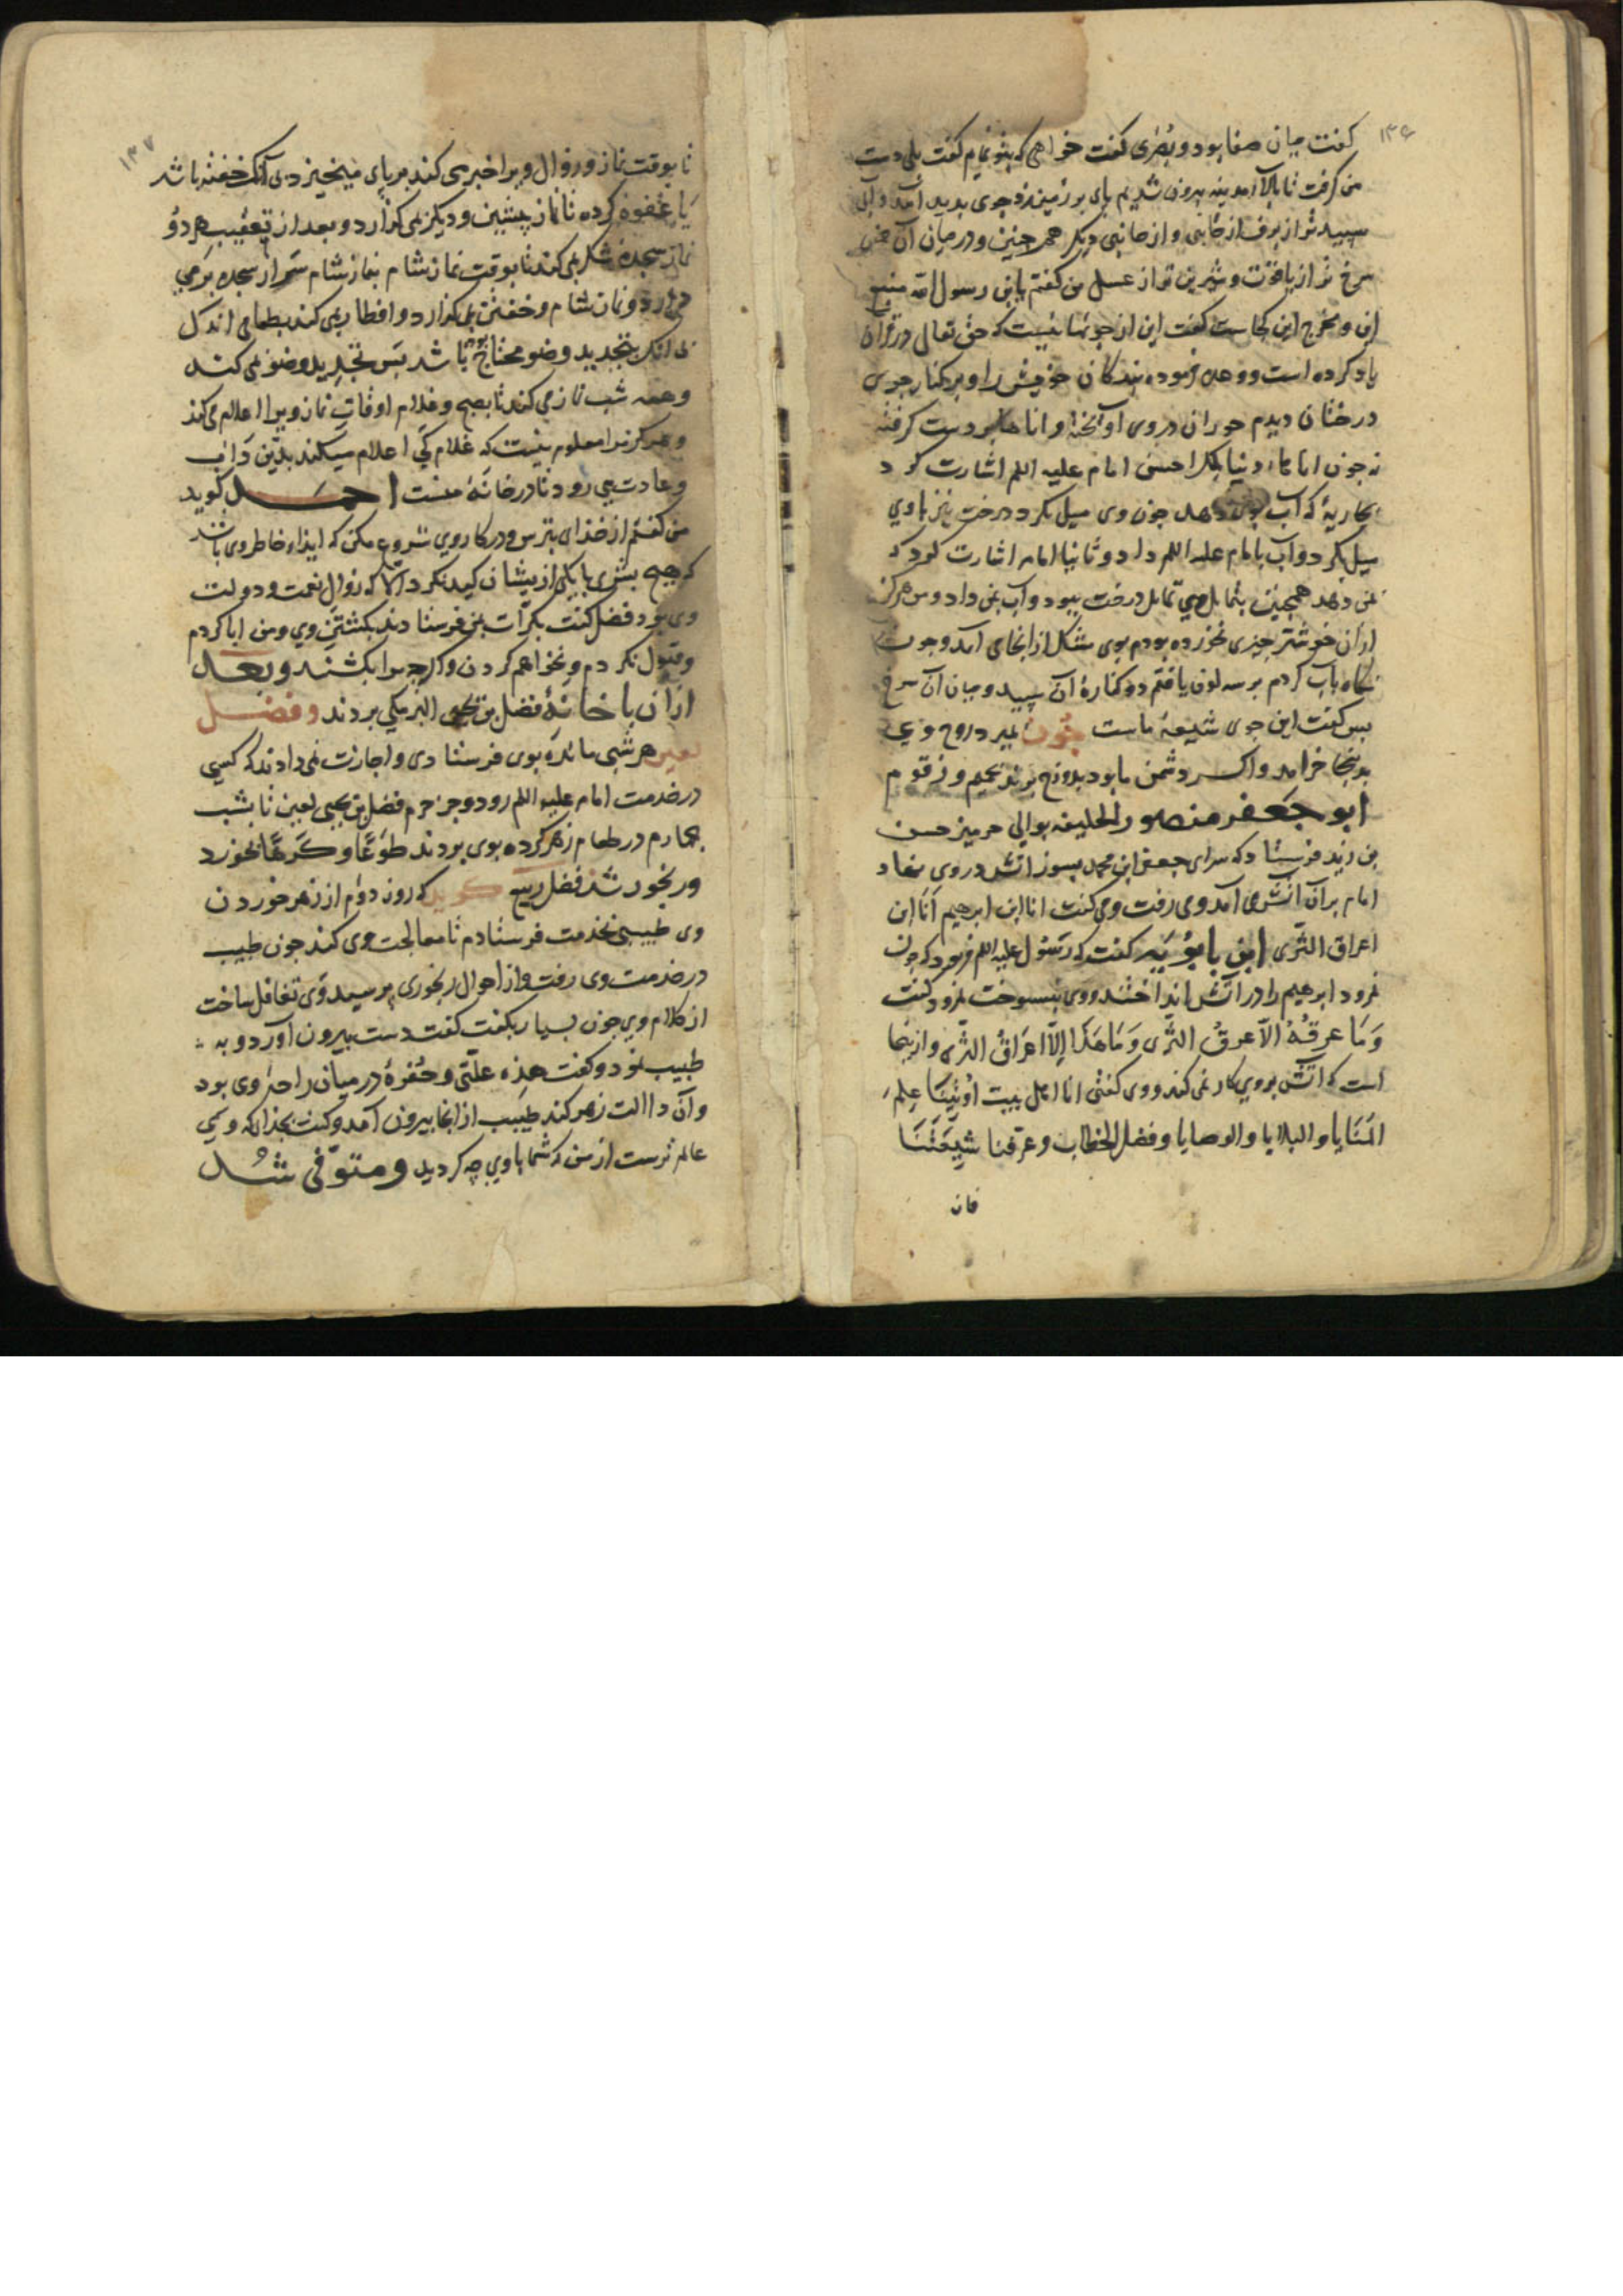 ۱۳۶
گفت میان صنعا بود و بصری گفت خواهی که بتو نمایم گفت بلی دست
من گرفت تا بالا آمد بیرون شدیم پای بر زمین زد جوی بدید آمد و آبی
سپیدتر از برف از جانبی و از جانبی دیگر همچنین و در میان آن
سرخ تر از یاقوت و شیرین تر از عسل من گفتم یابن رسول الله منبع
این و مخرج این کجاست گفت این از جویهائیست که حق تعالی در قرآن
یاد کرده است و وعده فرموده بندکان خویش را و بر کنار جوی
درختان دیدم حوران در وی آویخته و اناها بر دست گرفته
نه جون اناهاء دنیا بلکه احسن امام علیه السلم اشارت کرد
بجاریهٔ که آب بوی دهد جون وی میل بکرد درخت نیز باوی
میل بکرد و آب بامام علیه السلم داد و ثانیا امام اشارت کرد که
بمن دهد همچنین بتمایل وی تمایل درخت ببود و آب بمن داد و من هرکز
از آن خوشتر جیزی نخورده بودم بوی مشک از آنجای آمد و جون
نگاه بآب کردم بر سه لون یافتم دو کنارهٔ آن سپید و میان آن سرخ
بس گفت این جوی شیعهٔ ماست جون بمیرد روح وی
بدینجا خرامد و اکر دشمن ما بود بدوزخ برند بحمیم و زقوم
ابو جعفر منصور الخلیفه بوالی حرمین حسن
بن زید فرستاد که سرای جعفر ابن محمد بسوز آتش در وی نهاد
امام بر آن آتش می آمد و می رفت و می گفت انا ابن ابرهیم انا ابن
اعراق الثری ابن بابویه گفت که رسول علیه السلم فرمود که جون
نمرود ابرهیم را در آتش انداختند و وی نسوخت نمرود گفت
وَمَا عرقُهُ الّا عرقُ الثَّری وَمَا هَذَا إلّا اعراقُ الثَّری و از اینجا
است که آتش بر وی کار نمی کند و وی گفتی انا اهل بیت اُوتینَا عِلمَ
المَنَایا و البلایا و الوصایا و فضل الخطاب و عرّفنا شِیعَتَنَا
فان
۱۳۷
تا بوقت نماز و زوال ویرا خبر می کند بر پای میخیزد بی آنکه خفته باشد
یا غفوه کرده تا نماز پیشین و دیگر می گزارد و بعد از تعقیب هر دو
نماز سجدهٔ شکر می کند تا بوقت نماز شام بنماز شام سر از سجده بر می
دارد و نماز شام و خفتن می گزارد و افطار می کند بطعامی اندک
بی آنک بتجدید وضو محتاج باشد بس تجدید وضو می کند
و همه شب نماز می کند تا بصبح و غلام اوقات نماز ویرا اعلام می کند
و هرکز مرا معلوم نیست که غلام کی اعلام میکند بدین داب
و عادت می رود تا در خانهٔ منست احمد گوید
من گفتم از خذای بترس و در کار وی شروع مکن که ایذاء خاطر وی باشد
که هیچ بشری با یکی از ایشان کید نکرد الّا که زوال نعمت و دولت
وی بود فضل گفت بکرّات بمن فرستادند بکشتن وی و من ابا کردم
و قبول نکردم و نخواهم کردن و اکر چه مرا بکشند و بعد
از آن با خانهٔ فضل بن یحیی البرمکی بردند و فضل
لعین هر شبی مائده بوی فرستادی و اجازت نمی دادند که کسی
در خدمت امام علیه السلم رود و جز حرم فضل بن یحیی لعین تا بشب
چهارم در طعام زهر کرده بوی بردند طَوعًا و کَرهًا بخورد
و رنجور شد فضل ربیع گوید که روز دوّم از زهر خوردن
وی طبیبی بخدمت فرستادم تا معالجت وی کند جون طبیب
در خدمت وی رفت و از احوال رنجوری پرسید وی تغافل ساخت
از کلام وی جون بسیار بگفت گفت دست بیرون آورد و به
طبیب نمود و گفت هذه علّتی و حُفرهٔ در میان راحهٔ وی بود
و آن دلالت زهر کند طبیب از آنجا بیرون آمد و گفت بخذای که وی
عالم ترست از من که شما با وی چه کردید و متوفّی شد